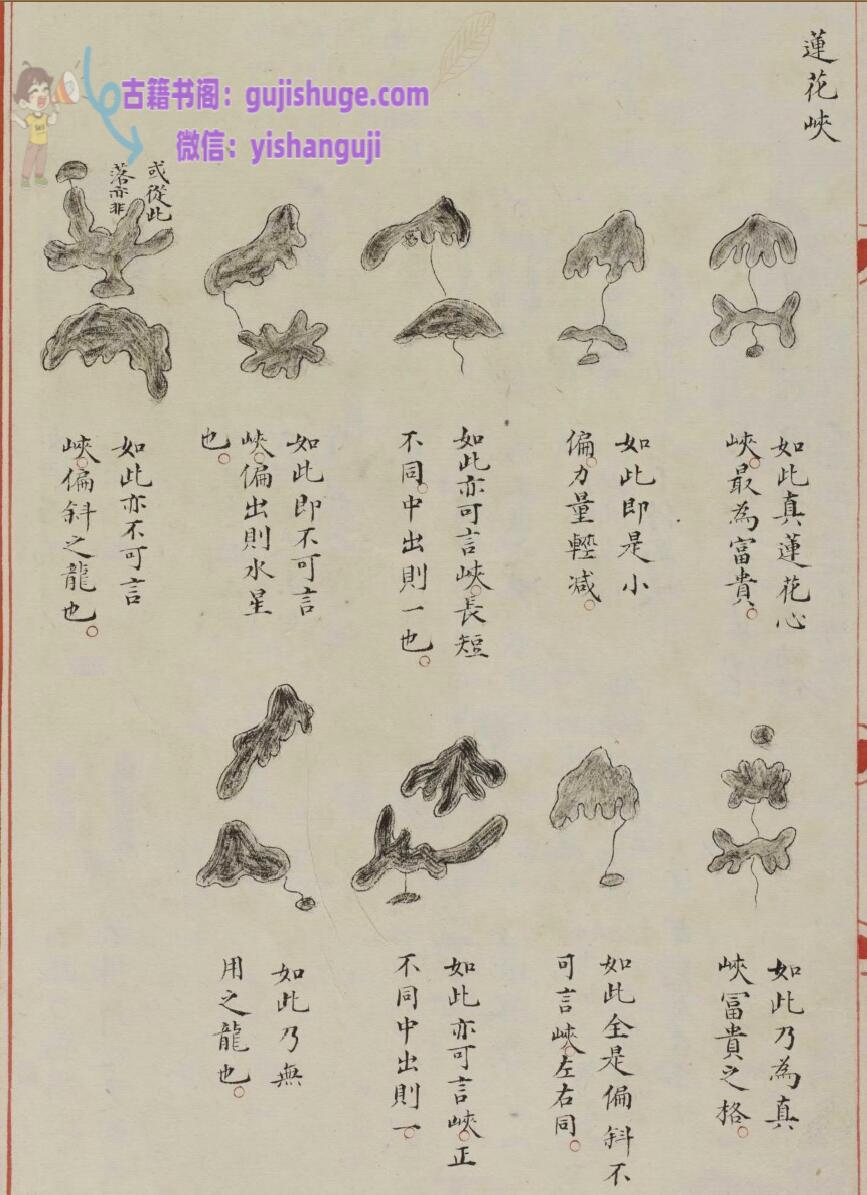 古籍书阁：gujishuge.com
微信：yishanguji
蓮花峽
如此真蓮花心
峽。最為富貴。
如此即是小
偏。力量輕減。
如此亦可言峽。長短
不同。中出則一也。
如此即不可言
峽。偏出則水星
也。
或從此
落亦非
如此亦不可言
峽。偏斜之龍也。
如此乃為真
峽富貴之格。
如此全是偏斜不
可言峽。左右同。
如此亦可言峽。正
不同中出則一。
如此乃無
用之龍也。